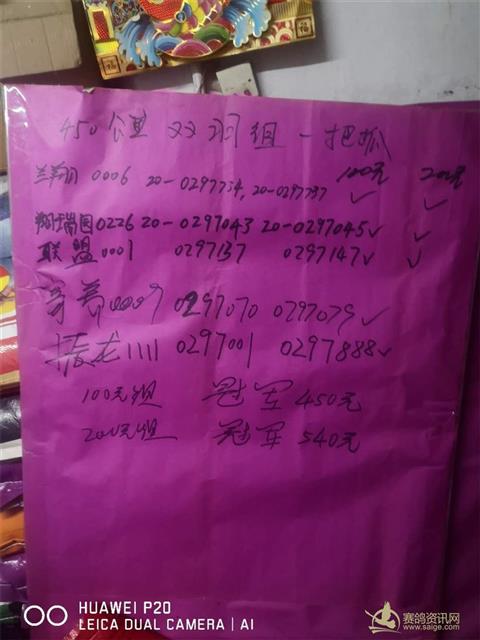 福
450公里 双羽组 一把抓
兰翔 0006 20-0297734, 20-0297737 100元 ✓ 200元 ✓
翔瑞园0226 20-0297043 20-0297045✓ ✓
联盟0001 0297137 0297147✓ ✓
0009 0297070 0297079✓
振龙1111 0297001 0297888✓
100元组 冠军 450元
200元组 冠军 540元
HUAWEI P20
LEICA DUAL CAMERA | AI
赛鸽资讯网
www.saige.com